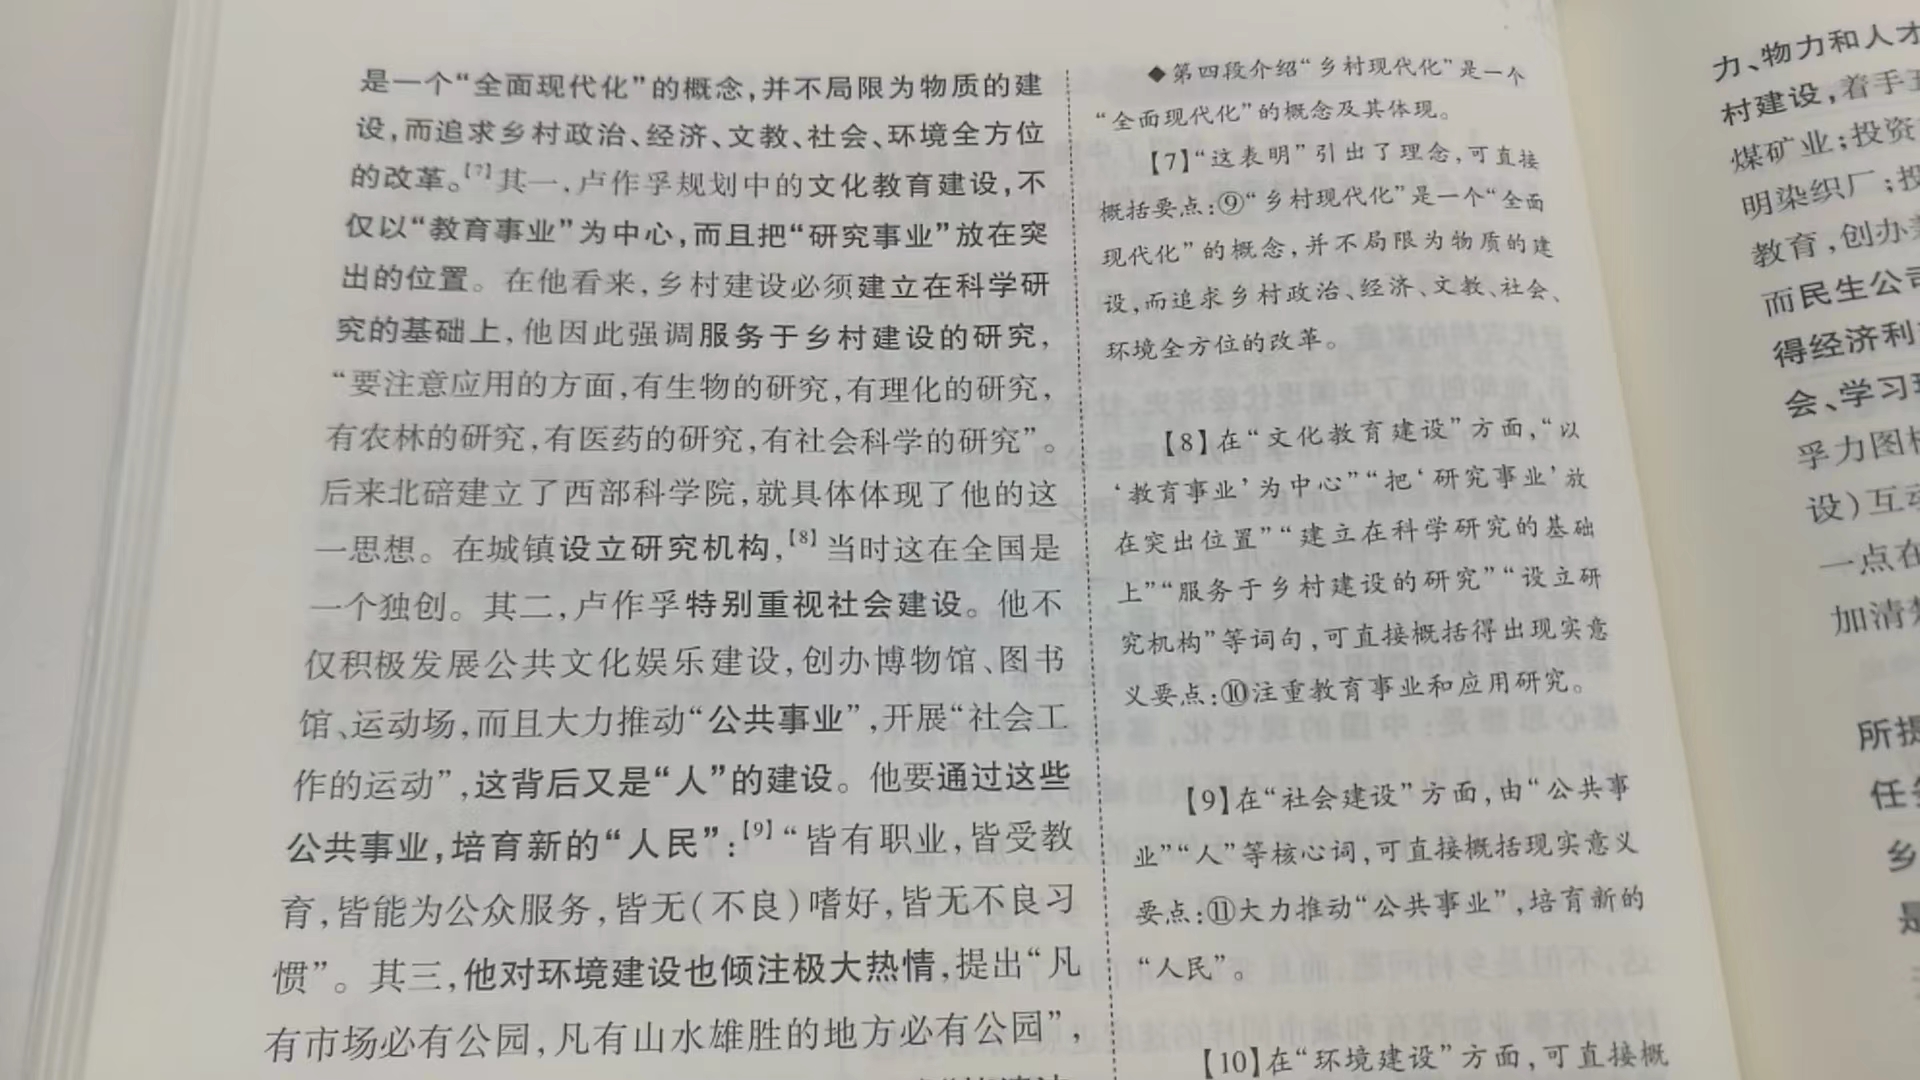 是一个“全面现代化”的概念,并不局限为物质的建
设,而追求乡村政治、经济、文教、社会、环境全方位
的改革。[7]其一,卢作孚规划中的文化教育建设,不
仅以“教育事业”为中心,而且把“研究事业”放在突
出的位置。在他看来,乡村建设必须建立在科学研
究的基础上,他因此强调服务于乡村建设的研究,
“要注意应用的方面,有生物的研究,有理化的研究,
有农林的研究,有医药的研究,有社会科学的研究”。
后来北碚建立了西部科学院,就具体体现了他的这
一思想。在城镇设立研究机构,[8]当时这在全国是
一个独创。其二,卢作孚特别重视社会建设。他不
仅积极发展公共文化娱乐建设,创办博物馆、图书
馆、运动场,而且大力推动“公共事业”,开展“社会工
作的运动”,这背后又是“人”的建设。他要通过这些
公共事业,培育新的“人民”:[9]“皆有职业,皆受教
育,皆能为公众服务,皆无(不良)嗜好,皆无不良习
惯”。其三,他对环境建设也倾注极大热情,提出“凡
有市场必有公园,凡有山水雄胜的地方必有公园”,
◆第四段介绍“乡村现代化”是一个
“全面现代化”的概念及其体现。
【7】“这表明”引出了理念,可直接
概括要点:⑨“乡村现代化”是一个“全面
现代化”的概念,并不局限为物质的建
设,而追求乡村政治、经济、文教、社会、
环境全方位的改革。
【8】在“文化教育建设”方面,“以
‘教育事业’为中心”“把‘研究事业’放
在突出位置”“建立在科学研究的基础
上”“服务于乡村建设的研究”“设立研
究机构”等词句,可直接概括得出现实意
义要点:⑩注重教育事业和应用研究。
【9】在“社会建设”方面,由“公共事
业”“人”等核心词,可直接概括现实意义
要点:⑪大力推动“公共事业”,培育新的
“人民”。
【10】在“环境建设”方面,可直接概
力、物力和人才
村建设,着手
煤矿业;投资
明染织厂;投
教育,创办
而民生公司
得经济利
会、学习
孚力图
设)互动
一点在
加清楚
所提
任务
乡
是